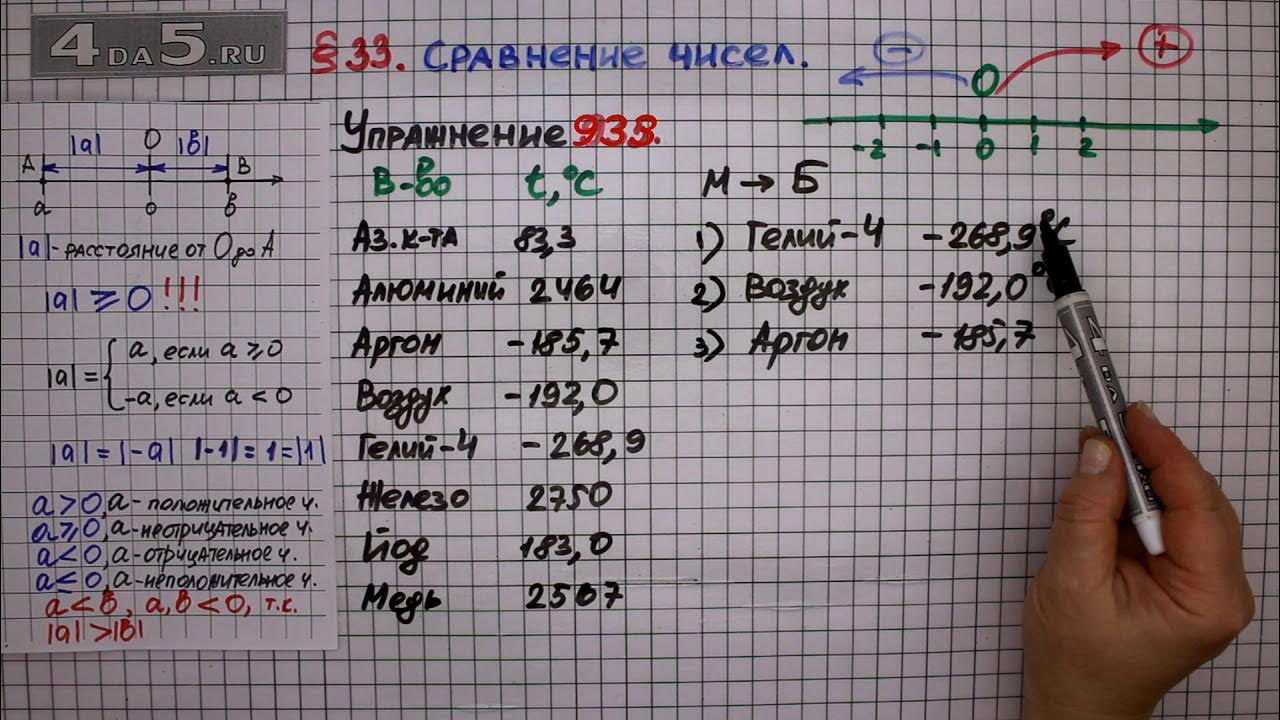 4DA5.RU
§33. Сравнение чисел.
− 0 +
-2 -1 0 1 2
|a| 0 |в|
A B
a 0 в
|a|-расстояние от 0 до A
|a| ≥ 0 !!!
|a| = { a, если a ≥ 0
-a, если a < 0
|a| = |-a| |-1| = 1 = |1|
a > 0, a - положительное ч.
a ≥ 0, a - неотрицательное ч.
a < 0, a - отрицательное ч.
a ≤ 0, a - неположительное ч.
a < в, a, в < 0, т.к.
|a| > |в|
Упражнение 938.
В-во t, °C
Аз. к-та 83,3
Алюминий 2464
Аргон -185,7
Воздух -192,0
Гелий-4 -268,9
Железо 2750
Йод 183,0
Медь 2567
М → Б
1) Гелий-4 -268,9°C
2) Воздух -192,0°
3) Аргон -185,7